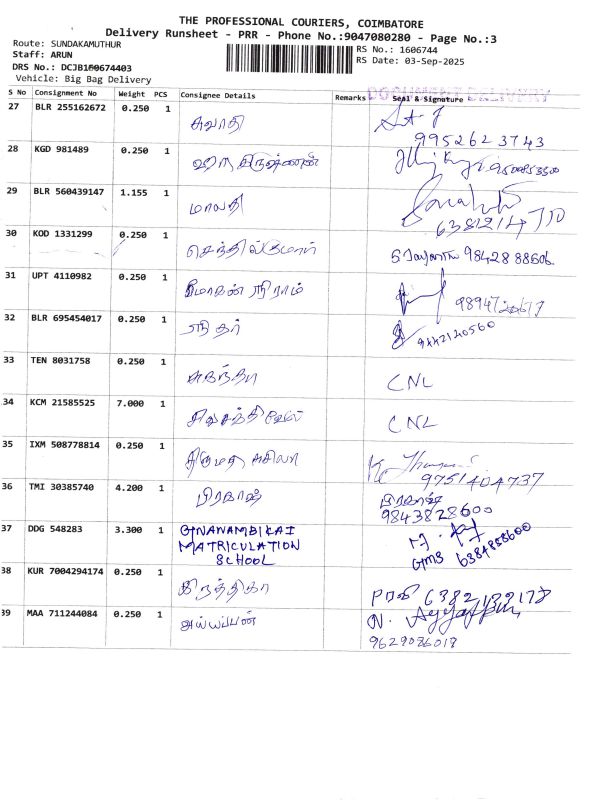 THE PROFESSIONAL COURIERS, COIMBATORE
Delivery Runsheet - PRR - Phone No.:9047080280 - Page No.:3
Route: SUNDAKAMUTHUR
RS No.: 1606744
Staff: ARUN
RS Date: 03-Sep-2025
DRS No.: DCJB100674403
Vehicle: Big Bag Delivery
S No Consignment No Weight PCS Consignee Details Remarks Seal & Signature
27 BLR 255162672 0.250 1
9952623743
28 KGD 981489 0.250 1
29 BLR 560439147 1.155 1 மாலதி
30 KOD 1331299 0.250 1 செந்தில்குமார் 98428 88606
31 UPT 4110982 0.250 1
32 BLR 695454017 0.250 1 ஸ்ரீதர் 9442140560
33 TEN 8031758 0.250 1 CNL
34 KCM 21585525 7.000 1 CNL
35 IXM 508778814 0.250 1
9751404737
36 TMI 30385740 4.200 1 பிரகாஷ்
9843828600
37 DDG 548283 3.300 1 GNANAMBIKAI
MATRICULATION
SCHOOL GMS 6384858600
38 KUR 7004294174 0.250 1 கிருத்திகா
39 MAA 711244084 0.250 1 அய்யப்பன் N. Ayyappan
9629086018